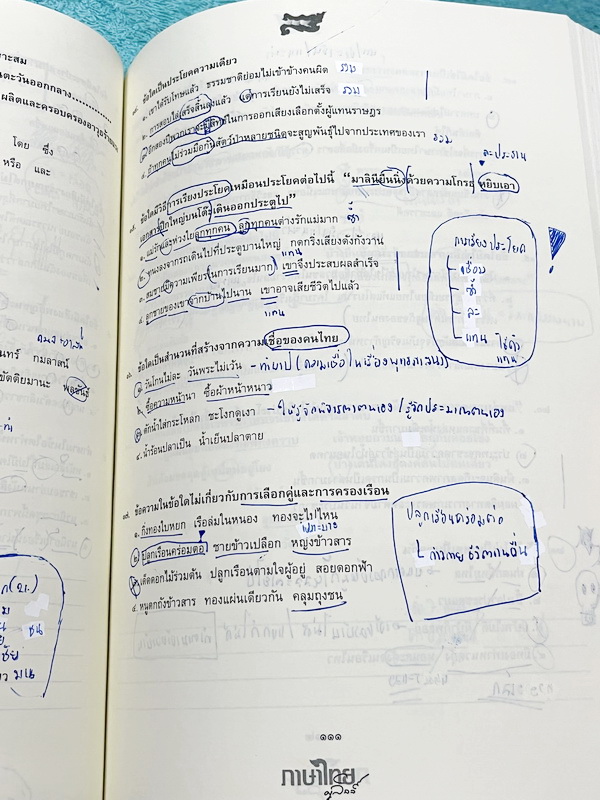 าะสม
ตะวันออกกลาง..........
ผลิตและครอบครองอาวุธร้าย
โดย ซึ่ง
หรือ และ
นทร์ กมลาสน์
ขัตติยมานะ พลขันธ์
ก(น.)
ม
น ชน
ชัย
ว มน
๑๔. ข้อใดเป็นประโยคความเดียว
๑. เขาได้รับโทษแล้ว ธรรมชาติย่อมไม่เข้าข้างคนผิด รวม
๒. การสอบไล่เสร็จสิ้นลงแล้ว แต่การเรียนยังไม่เสร็จ รวม
๓. อีกสองปีพวกเราจะมีสิทธิในการออกเสียงเลือกตั้งผู้แทนราษฎร
๔. ถ้าทุกคนไม่ร่วมมือกันสัตว์ป่าหลายชนิดจะสูญพันธุ์ไปจากประเทศของเรา รวม
ละประธาน
๑๕. ข้อใดมีวิธีการเรียงประโยคเหมือนประโยคต่อไปนี้ "มาลินียืนนิ่งด้วยความโกรธ หยิบเอา
เอกสารปึกใหญ่บนโต๊ะเดินออกประตูไป"
๑. แม่รักและห่วงใยลูกทุกคน ลูกทุกคนต่างรักแม่มาก ซ้ำ
๒. ทนงลงจากรถเดินไปที่ประตูบานใหญ่ กดกริ่งเสียงดังกังวาน
แทน
๓. สมชายมีความเพียรในการเรียนมาก เขาจึงประสบผลสำเร็จ
๔. ลูกชายของเขาจากบ้านไปนาน เขาอาจเสียชีวิตไปแล้ว
แทน
การเรียงประโยค
เชื่อม
ซ้ำ
ละ
แทน ใช้คำแทน
๑๖. ข้อใดเป็นสำนวนที่สร้างจากความเชื่อของคนไทย
๑. วันโกนไม่ละ วันพระไม่เว้น - ทำบาป (ความเชื่อในเรื่องพุทธศาสนา)
๒. ซื้อความหน้านา ซื้อผ้าหน้าหนาว
๓. ตักน้ำใส่กะโหลก ชะโงกดูเงา - ให้รู้จักพิจารณาตนเอง / รู้จักประมาณตนเอง
๔. น้ำร้อนปลาเป็น น้ำเย็นปลาตาย
๑๗. ข้อความในข้อใดไม่เกี่ยวกับการเลือกคู่และการครองเรือน
๑. กิ่งทองใบหยก เรือล่มในหนอง ทองจะไปไหน
๒. ปลูกเรือนคร่อมตอ ชายข้าวเปลือก หญิงข้าวสาร
๓. เด็ดดอกไม้ร่วมต้น ปลูกเรือนตามใจผู้อยู่ สอยดอกฟ้า
๔. หนูตกถังข้าวสาร ทองแผ่นเดียวกัน คลุมถุงชน
ปลูกเรือนคร่อมตอ
๑๑๑
ภาษาไทย